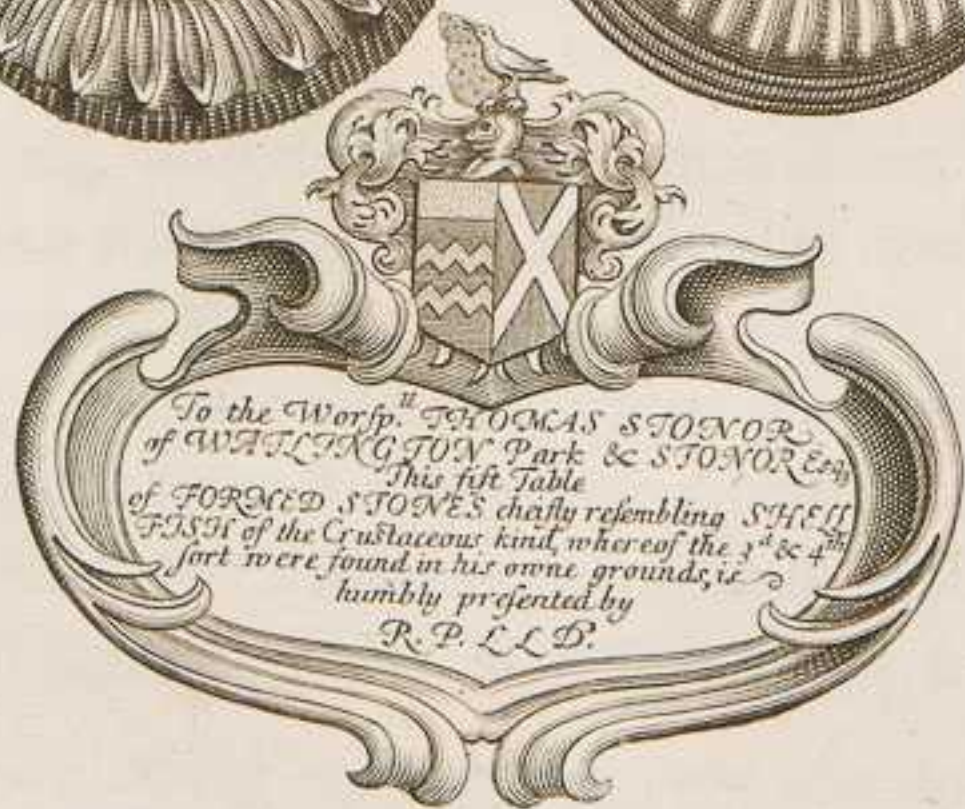 To the Worsp.ll THOMAS STONOR
of WATLINGTON Park & STONOR Esqr
This fift Table
of FORMED STONES cheifly resembling SHELL
FISH of the Crustaceous kind, whereof the 3d & 4th
sort were found in his owne grounds, is
humbly presented by
R. P. LLD.